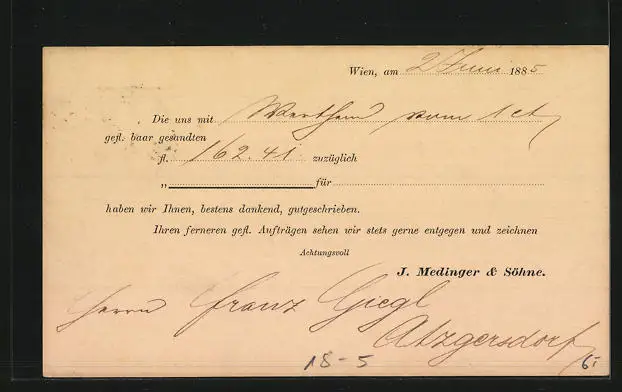 Wien, am 2 Juni 1885
Die uns mit Werthem vom 1 ct
gefl. baar gesandten
fl. 162.41 zuzüglich
„ für
haben wir Ihnen, bestens dankend, gutgeschrieben.
Ihren ferneren gefl. Aufträgen sehen wir stets gerne entgegen und zeichnen
Achtungsvoll
J. Medinger & Söhne.
Herrn Franz Giegl
Atzgersdorf
18-5